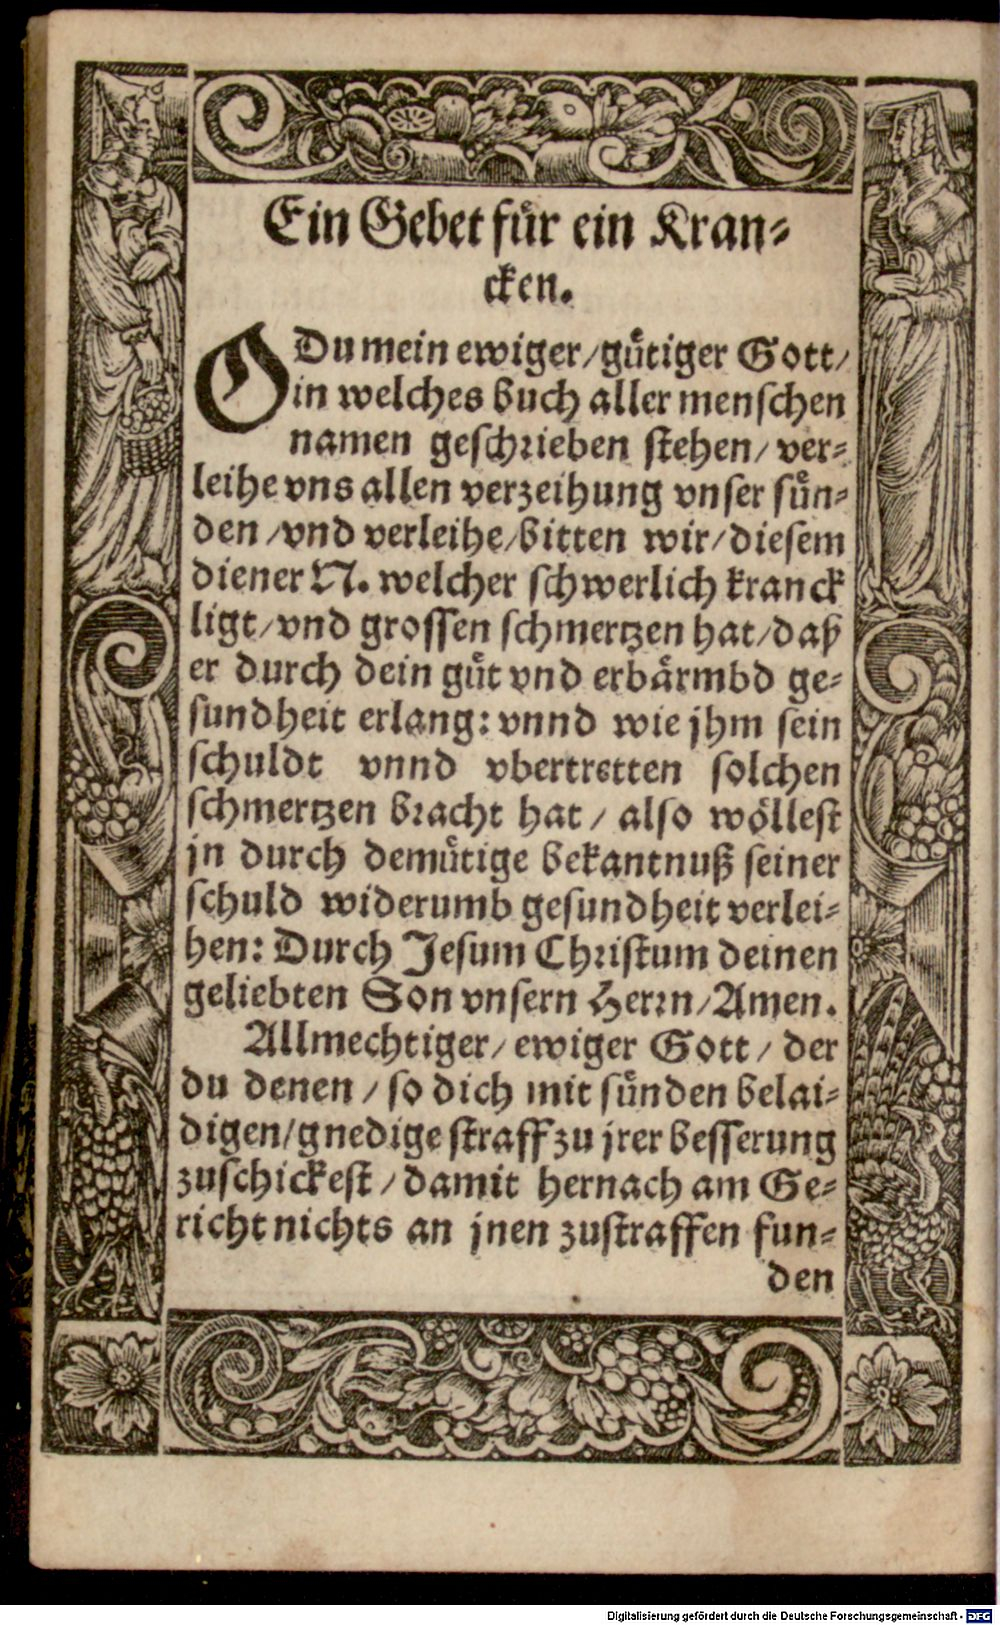 Ein Gebet fuͤr ein Kran⸗
cken.
O Du mein ewiger/guͤtiger Gott/
in welches buch aller menschen
namen geschrieben stehen/ ver⸗
leihe vns allen verzeihung vnser suͤn⸗
den /vnd verleihe/bitten wir/diesem
diener N. welcher schwerlich kranck
ligt/vnd grossen schmertzen hat/daß
er durch dein guͤt vnd erbaͤrmbd ge⸗
sundheit erlang: vnnd wie jhm sein
schuldt vnnd vbertretten solchen
schmertzen bracht hat / also woͤllest
jn durch demuͤtige bekantnuß seiner
schuld widerumb gesundheit verlei⸗
hen: Durch Jesum Christum deinen
geliebten Son vnsern Herrn/Amen.
Allmechtiger/ ewiger Gott / der
du denen / so dich mit suͤnden belai⸗
digen/gnedige straff zu jrer besserung
zuschickest / damit hernach am Ge⸗
richt nichts an jnen zustraffen fun⸗
den
Digitalisierung gefördert durch die Deutsche Forschungsgemeinschaft - DFG